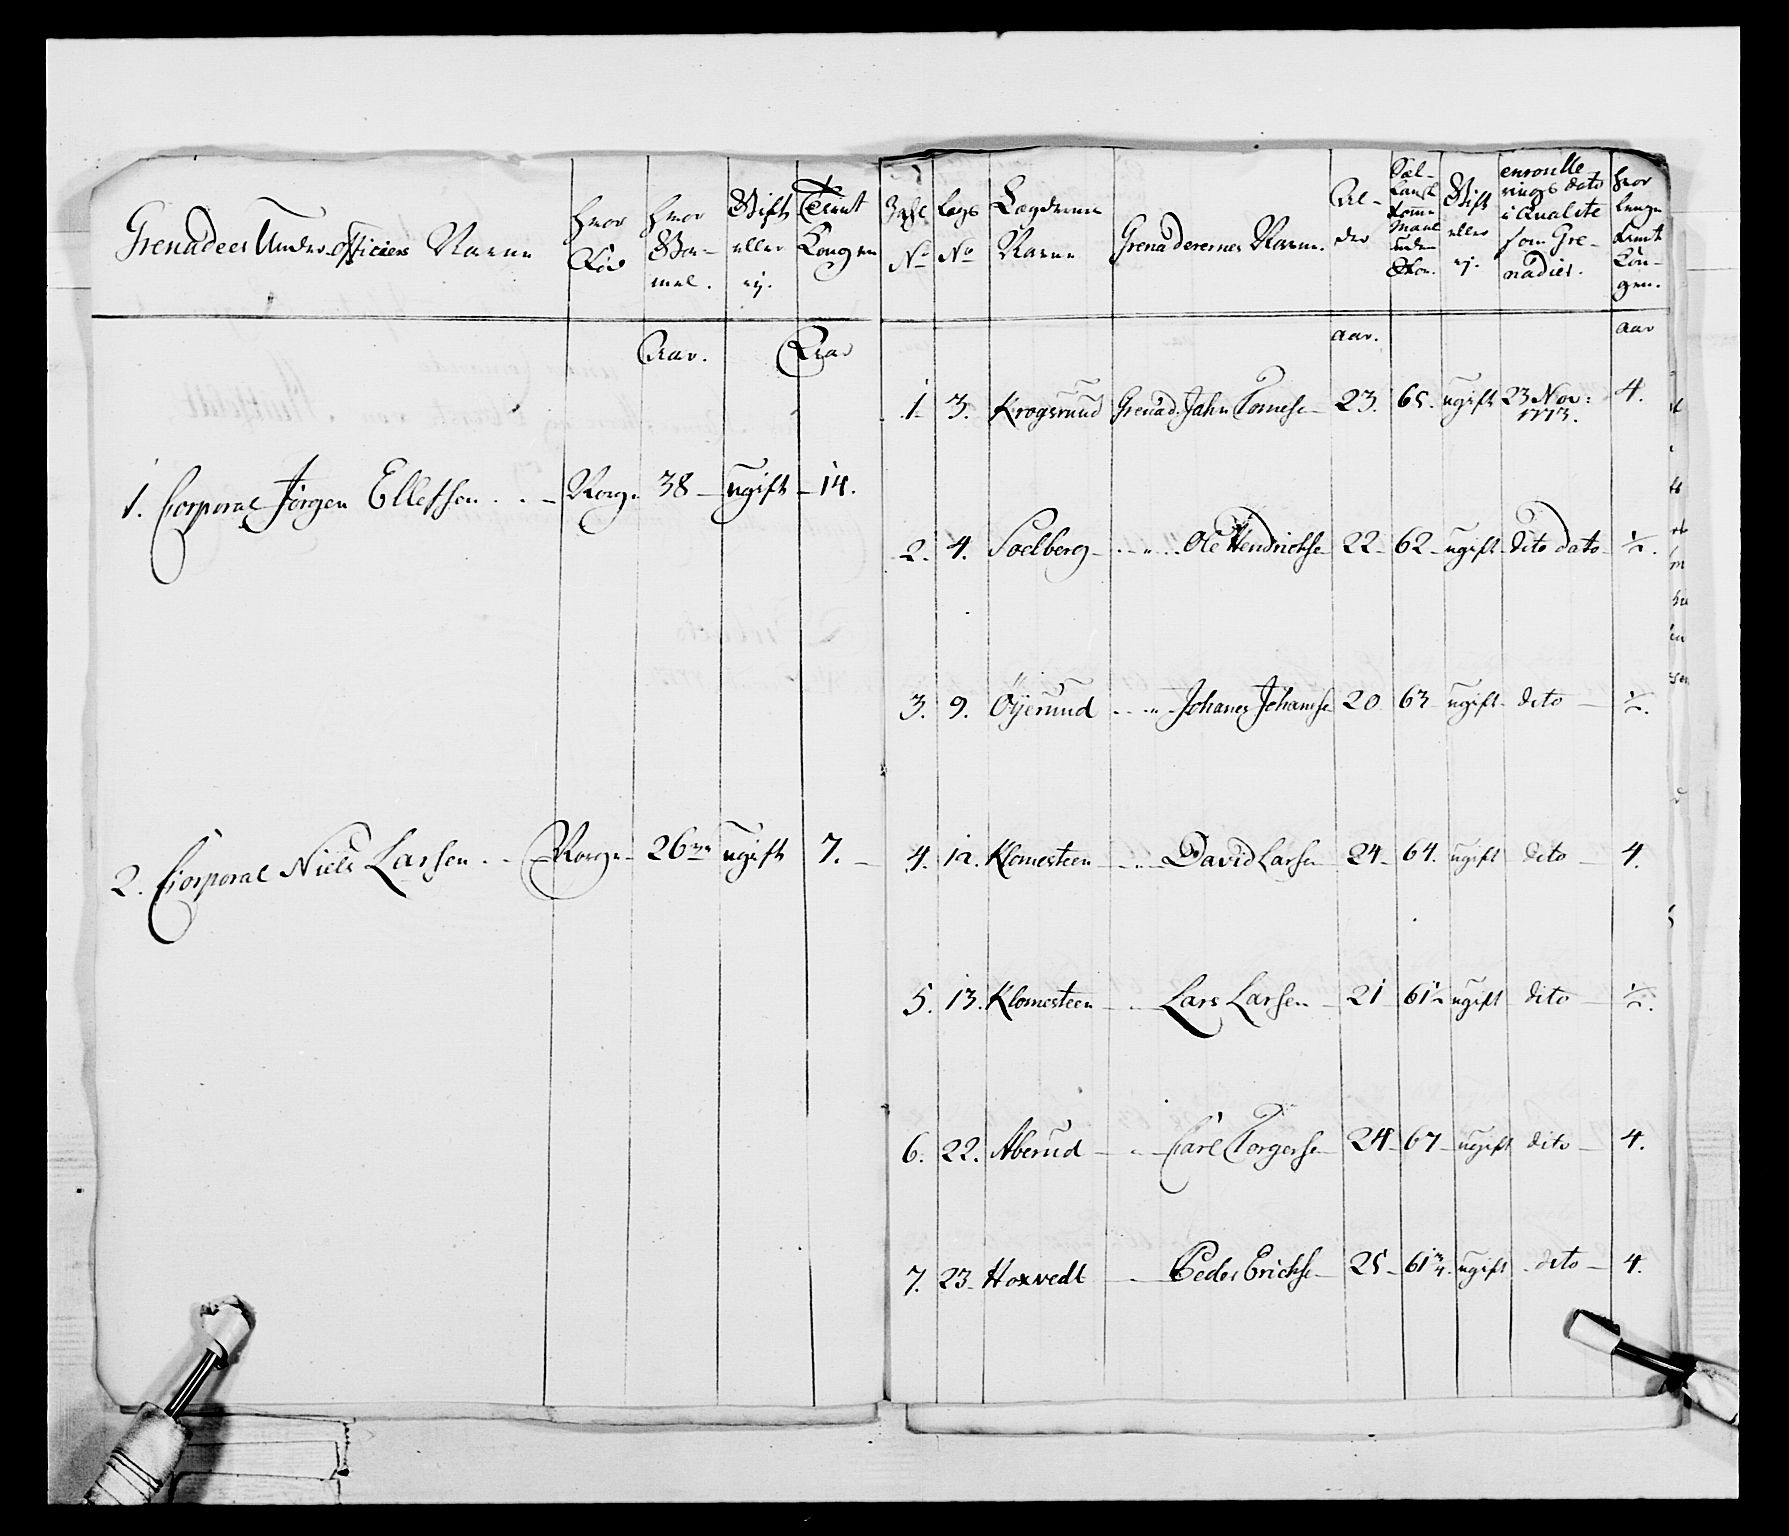 Grenadeer Under officiers Nafne
hvor
Fød
hvor
Gam-
mel.
Gift
eller
ej.
Tient
Kongen
Aar.
Aar
1. Corporal Jörgen Ellefsen . . – Norge 38 – ugift – 14.
2. Corporal Niels Larsen . . – Norge – 26 ugift 7. –
No
Legs
No
Lægdernes
Nafne
Grenaderernes Nafne.
Al-
der
Gift
eller
ej.
enroulle
rings dato
i Qualite
som Gre-
nadier.
hvor
lenge
tient
Kon-
gen.
aar.
aar
1. 3. Krogsrud Grenad. Jahn Tomese – 23. 65. ugift 23 Nov: 4.
1773.
2. 4. Soelberg – . . „ . . Ole Hendrichse 22 – 62 – ugift dito dato – ½.
3. 9. Öijerud . . „ – Johanes Johanse 20 63 ugift – dito – ½.
4. 12. Klomesteen – „ – David Larsen 24 – 64. ugift dito – 4.
5. 13. Klomesteen – „ – Lars Larsen – 21 – 61½ ugift dito – ½.
6. 22. Aberud – „ – Carl Torgerse – 24 – 67 – ugift dito – 4.
7. 23 – Hoxvedt – Peder Erichse – 25 – 61¾ ugift – dito – 4.